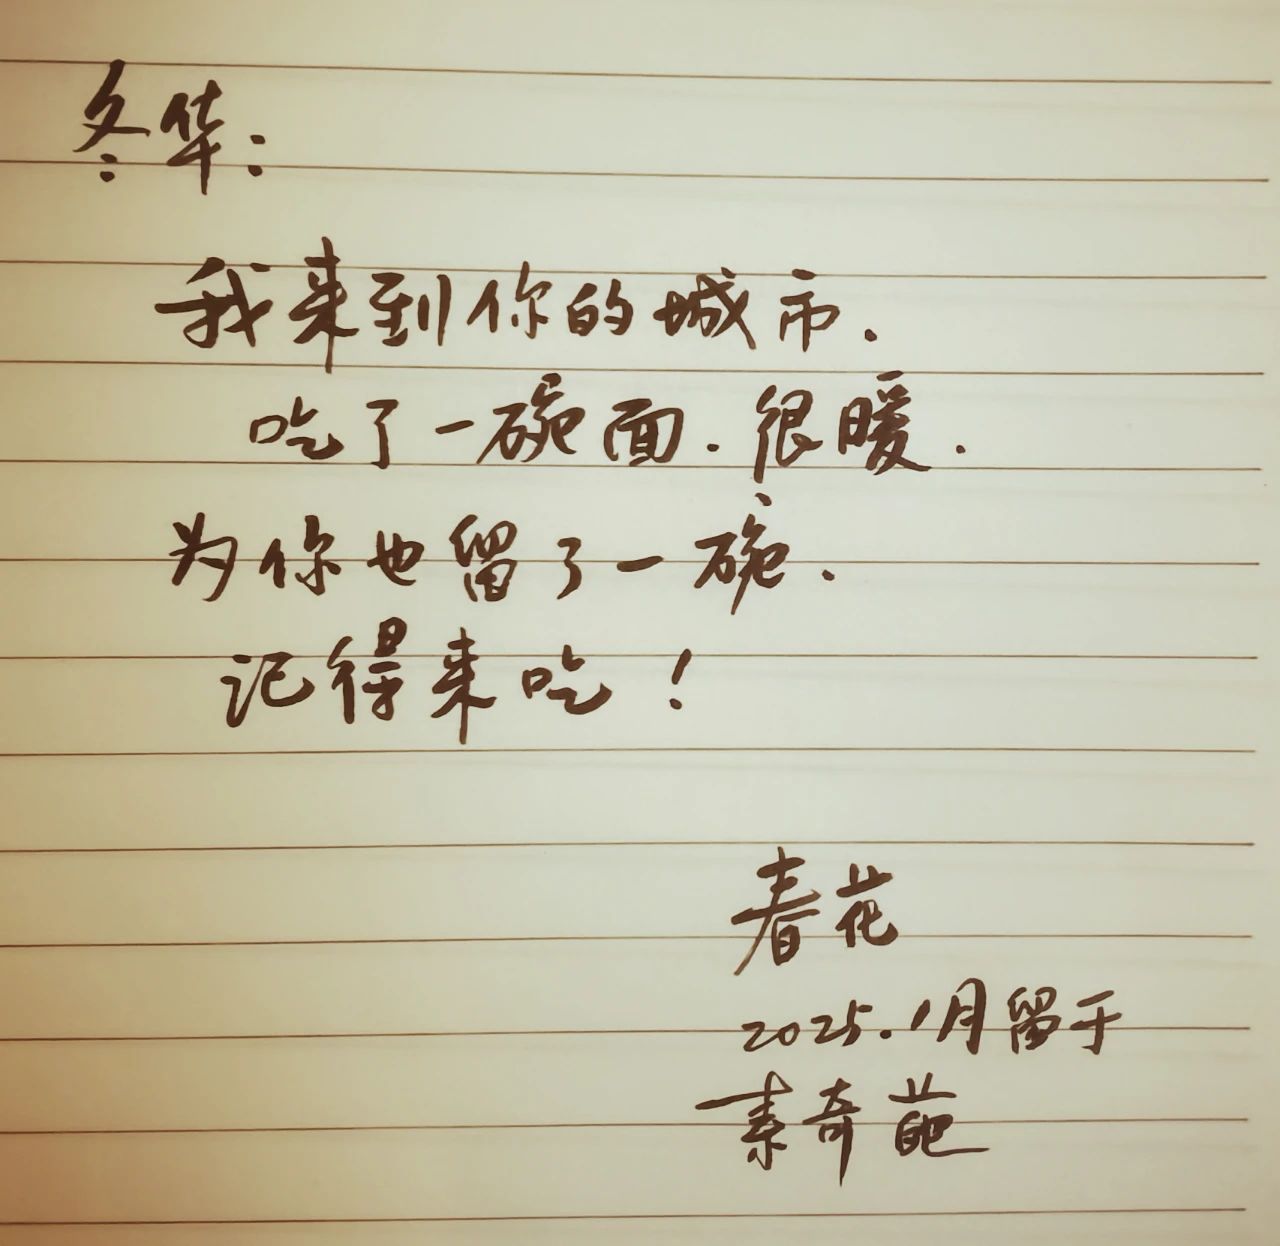 冬华:
我来到你的城市.
吃了一碗面.很暖.
为你也留了一碗.
记得来吃!
春花
2025.1月留于
素奇葩